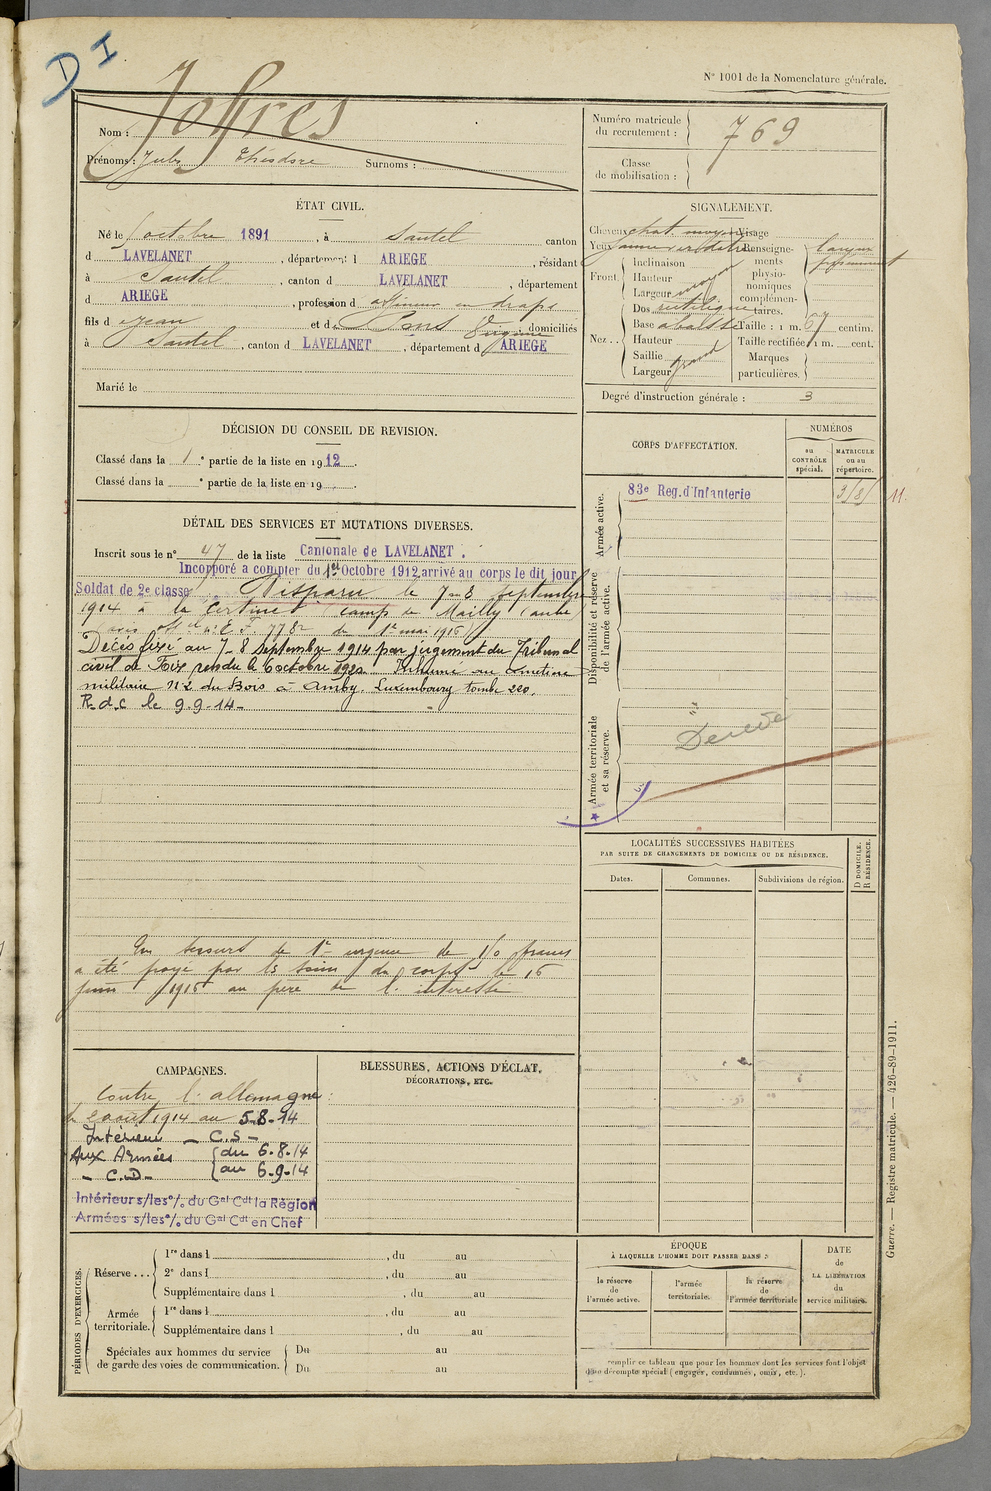 D I
N° 1001 de la Nomenclature générale.
Nom : Joffres
Prénoms : Jules Théodore Surnoms :
Numéro matricule du recrutement : 769
Classe de mobilisation :
ÉTAT CIVIL.
Né le octobre 1891, à Sautel canton
d LAVELANET, département d ARIEGE, résidant
à Sautel, canton d LAVELANET, département
d ARIEGE, profession d en draps
fils d Jean et de Pons Virginie, domiciliés
à Sautel, canton d LAVELANET, département d ARIEGE
Marié le
SIGNALEMENT.
Cheveux chat. moyen Visage
Yeux jaune verdâtre
Front : Inclinaison
Hauteur
Largeur moyen
Nez : Dos rectiligne
Base abaissée
Hauteur
Saillie
Largeur grand
Renseignements physionomiques complémentaires.
Taille : 1 m. 67 centim.
Taille rectifiée 1 m. cent.
Marques particulières.
Degré d'instruction générale : 3
DÉCISION DU CONSEIL DE REVISION.
Classé dans la 1e partie de la liste en 1912.
Classé dans la e partie de la liste en 19
CORPS D'AFFECTATION.
NUMÉROS
au CONTRÔLE spécial.
MATRICULE ou au répertoire.
Armée active.
83e Reg. d'Infanterie
Disponibilité et réserve de l'armée active.
Armée territoriale et sa réserve.
DÉTAIL DES SERVICES ET MUTATIONS DIVERSES.
Inscrit sous le n° 47 de la liste Cantonale de LAVELANET.
Incorporé à compter du 1er Octobre 1912, arrivé au corps le dit jour
Soldat de 2e classe Disparu le 7-8 Septembre
1914 à la Certine camp de Mailly (aube)
du 1er mai 1915)
Décès fixé au 7-8 Septembre 1914 par jugement du Tribunal
civil de Foix rendu le 6 octobre 1920. Inhumé au cimetière
militaire n°2 du Bois à Amby. Luxembourg tombe 220.
R.d.c le 9.9.14-
Un secours de 1re urgence de 150 francs
a été payé par les soins du corps le 15
juin 1915 au père de l'intéressé
LOCALITÉS SUCCESSIVES HABITÉES
PAR SUITE DE CHANGEMENTS DE DOMICILE OU DE RÉSIDENCE.
Dates. Communes. Subdivisions de région.
D DOMICILE. R RÉSIDENCE.
CAMPAGNES.
Contre l'allemagne
2 août 1914 au 5-8-14
Intérieur - C.S -
Aux Armées du 6.8.14
- C.D - au 6.9.14
Intérieur s/les o/. du Gal Cdt la Région
Armées s/les o/. du Gal Cdt en Chef
BLESSURES, ACTIONS D'ÉCLAT,
DÉCORATIONS, ETC.
PÉRIODES D'EXERCICES.
Réserve... 1re dans l , du au
2e dans l , du au
Supplémentaire dans l , du au
Armée territoriale. 1re dans l , du au
Supplémentaire dans l , du au
Spéciales aux hommes du service de garde des voies de communication. Du au
Du au
ÉPOQUE
À LAQUELLE L'HOMME DOIT PASSER DANS :
la réserve de l'armée active.
l'armée territoriale.
la réserve de l'armée territoriale
DATE de LA LIBÉRATION du service militaire.
remplir ce tableau que pour les hommes dont les services font l'objet
décompte spécial (engagés, condamnés, omis, etc.).
Guerre. — Registre matricule. — 426-89-1911.